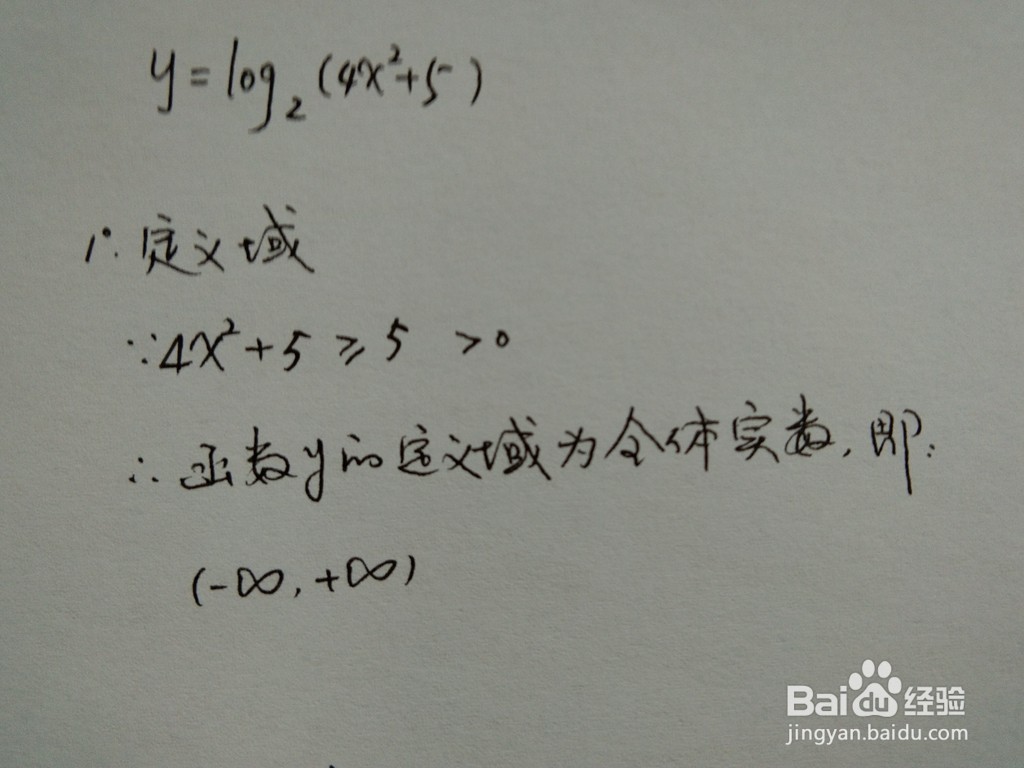 y=log₂(4x²+5)
1°. 定义域
∵4x²+5≥5 >0
∴函数y的定义域为全体实数,即:
(-∞,+∞)
Bai 经验
jingyan.baidu.com